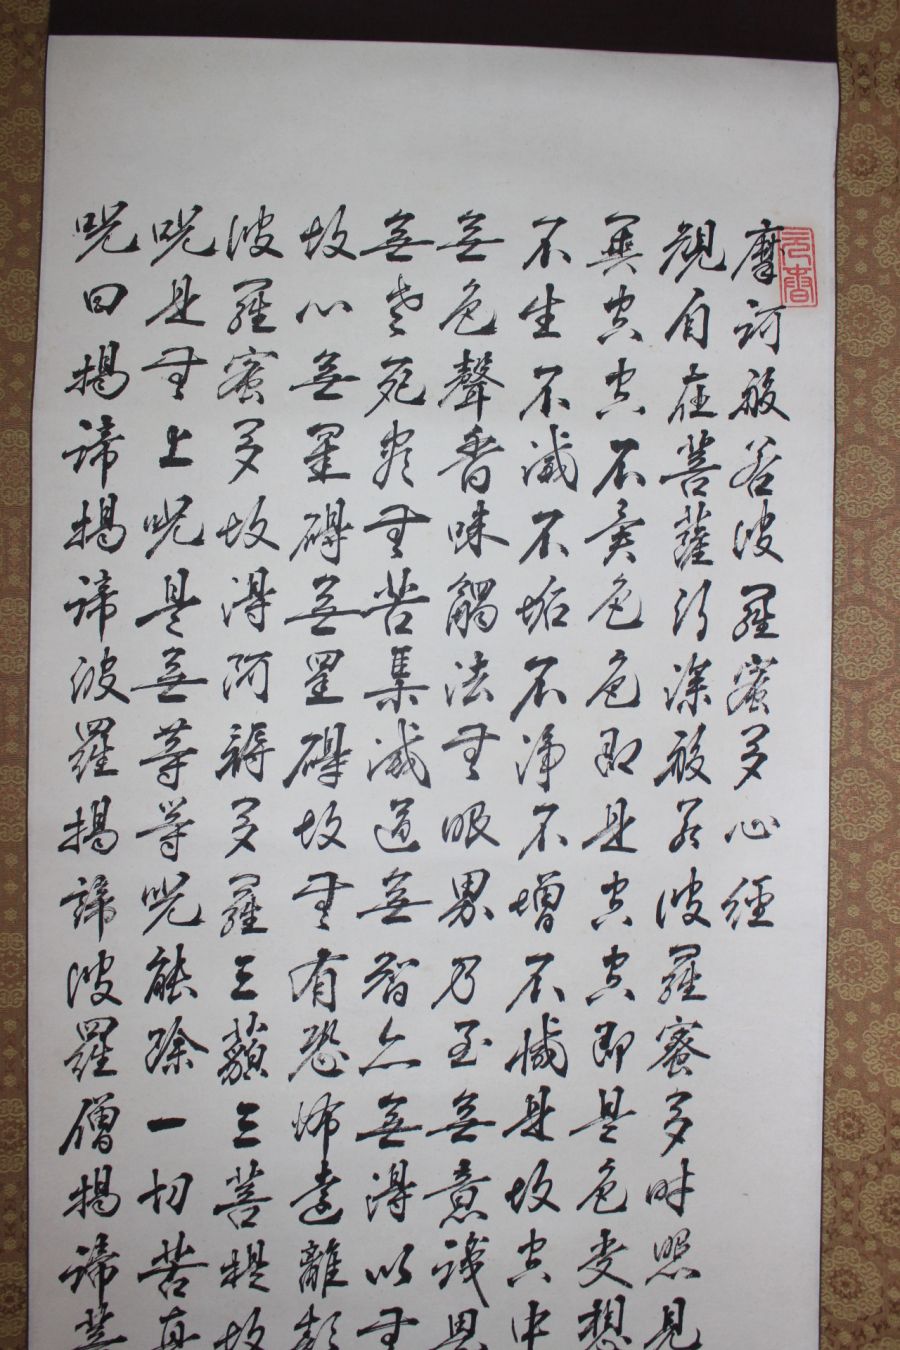 摩訶般若波羅蜜多心經
觀自在菩薩行深般若波羅蜜多時照見
異空空不異色色即是空空即是色受想
不生不滅不垢不淨不增不減是故空中
無色聲香味觸法无眼界乃至無意識界
無老死盡无苦集滅道無智亦無得以无
故心無罣礙無罣礙故无有恐怖遠離顛
波羅蜜多故得阿耨多羅三藐三菩提故
呪是无上呪是無等等呪能除一切苦真
呪曰揭諦揭諦波羅揭諦波羅僧揭諦菩